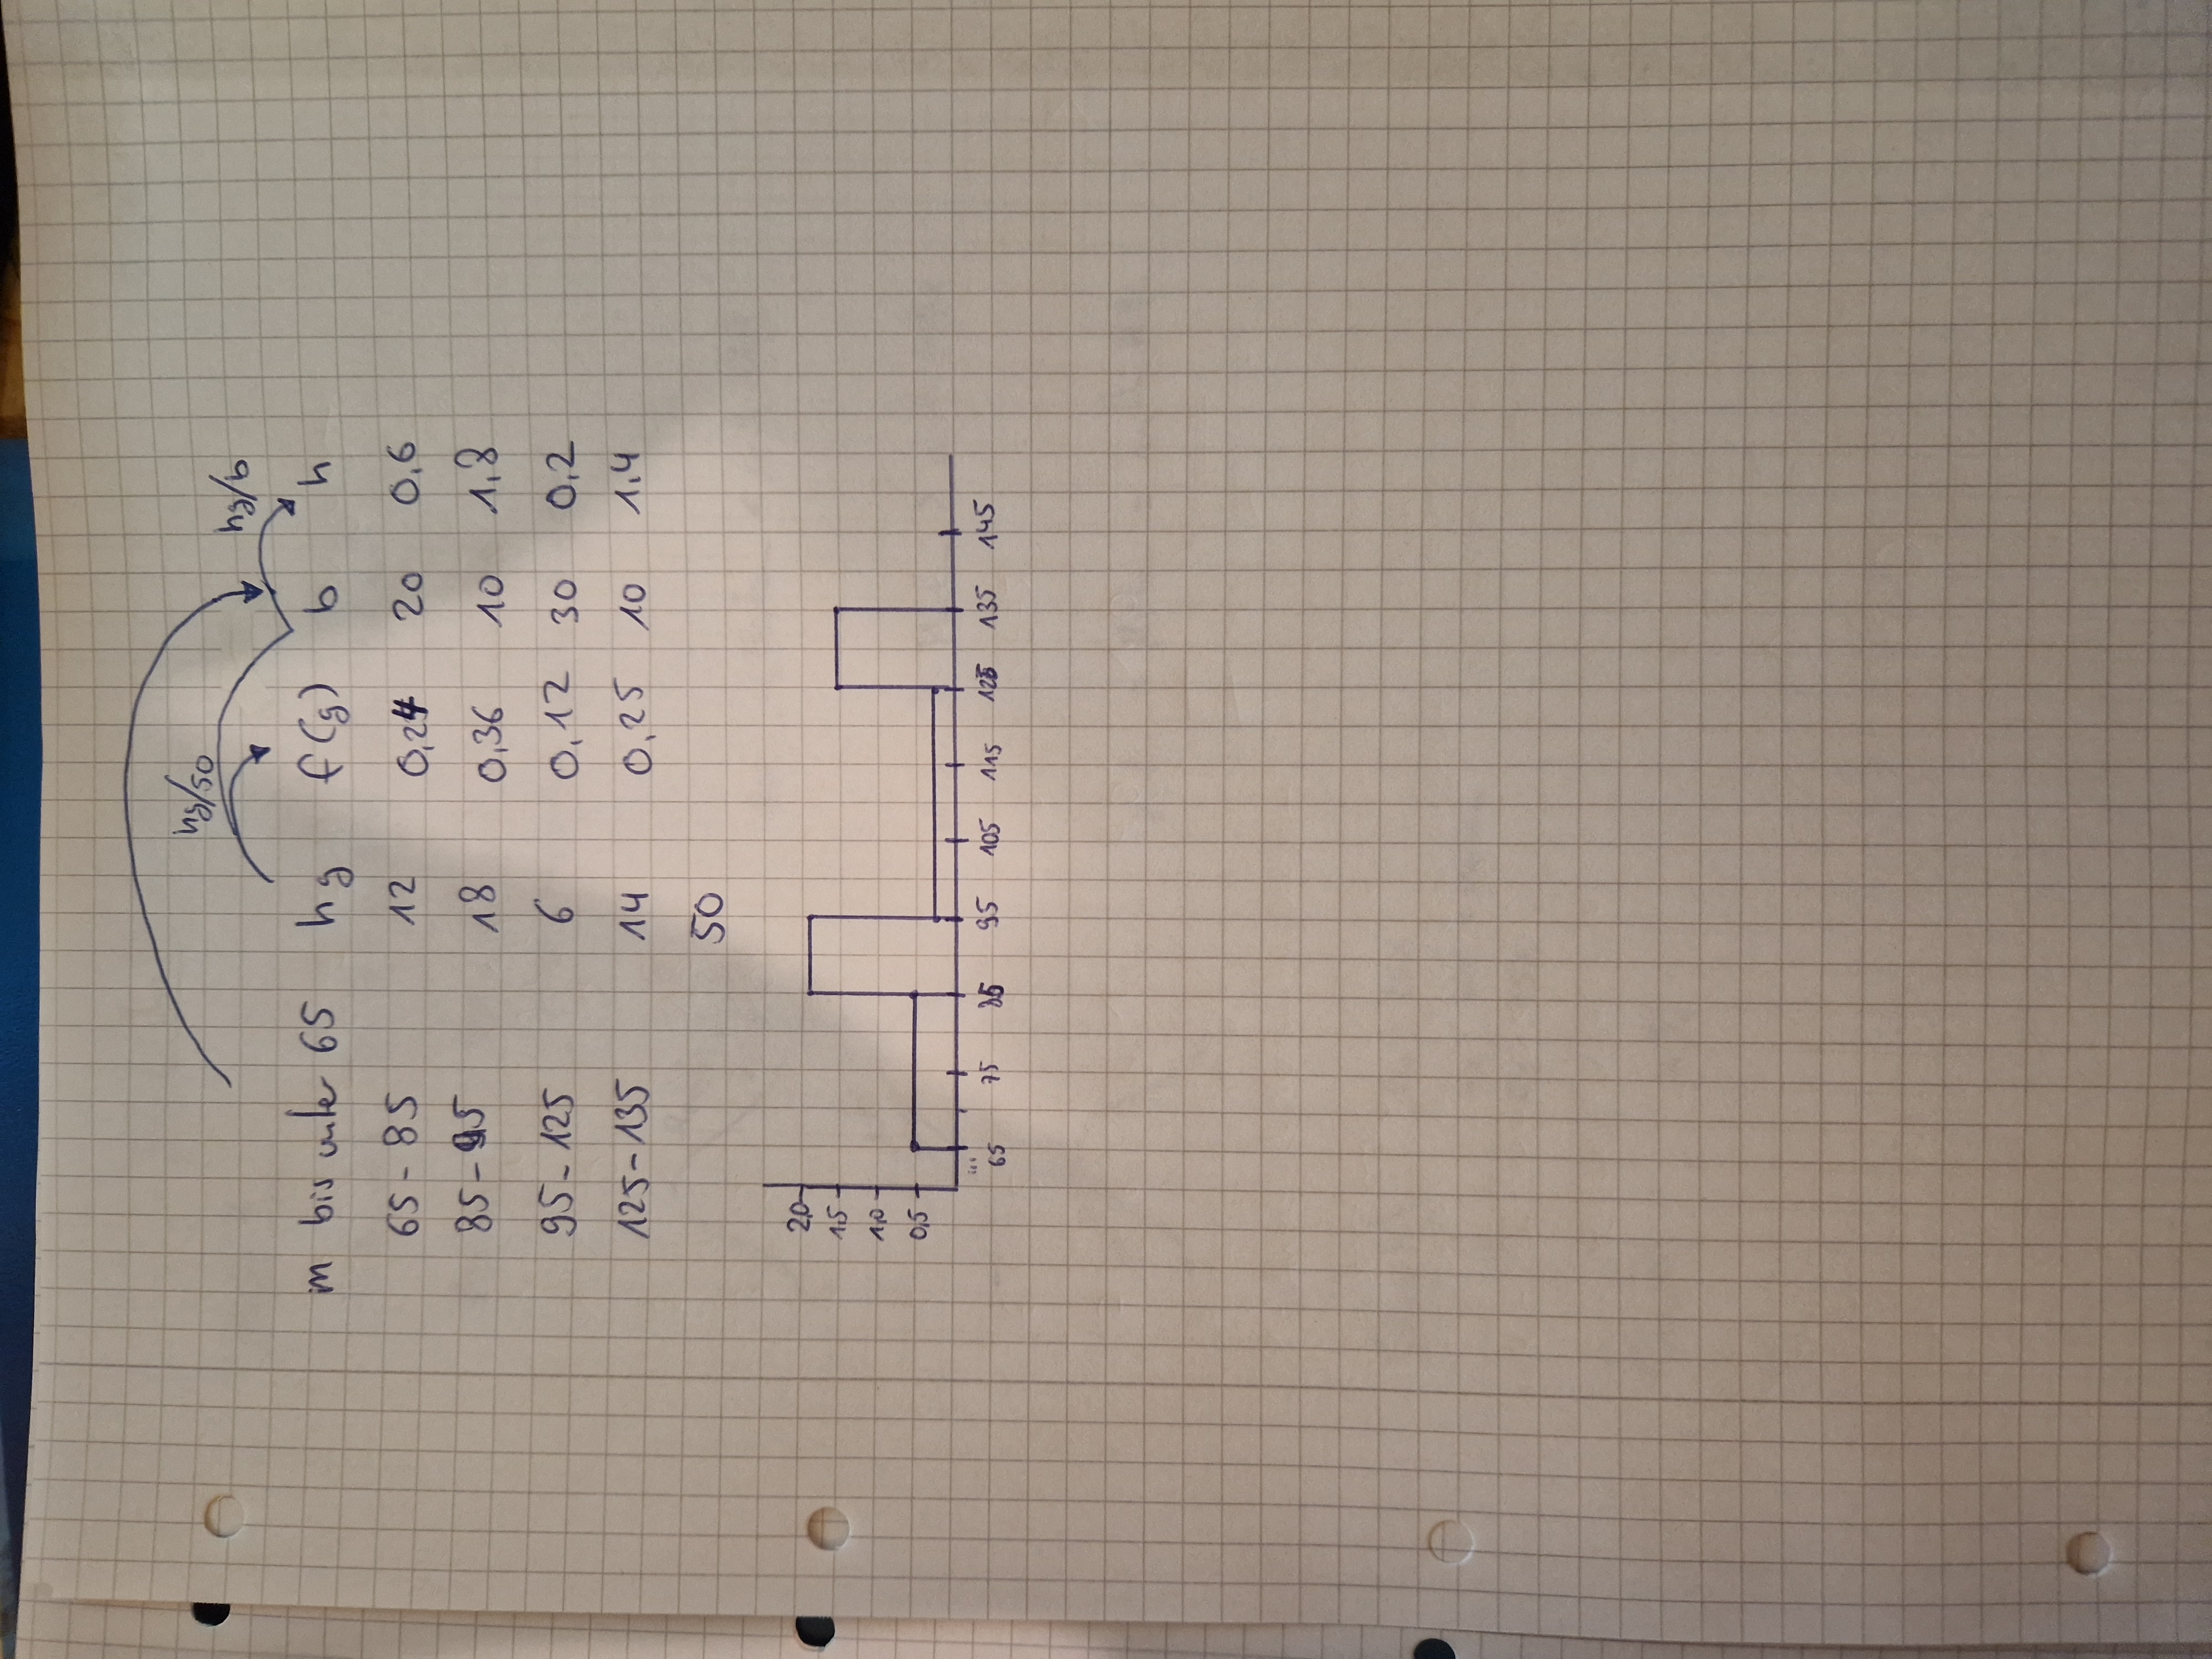 hg/50
hg/b
m bis unter 65 hg f(g) b h
65-85 12 0,24 20 0,6
85-95 18 0,36 10 1,8
95-125 6 0,12 30 0,2
125-135 14 0,25 10 1,4
50
2,0
1,5
1,0
0,5
... 65 75 85 95 105 115 125 135 145